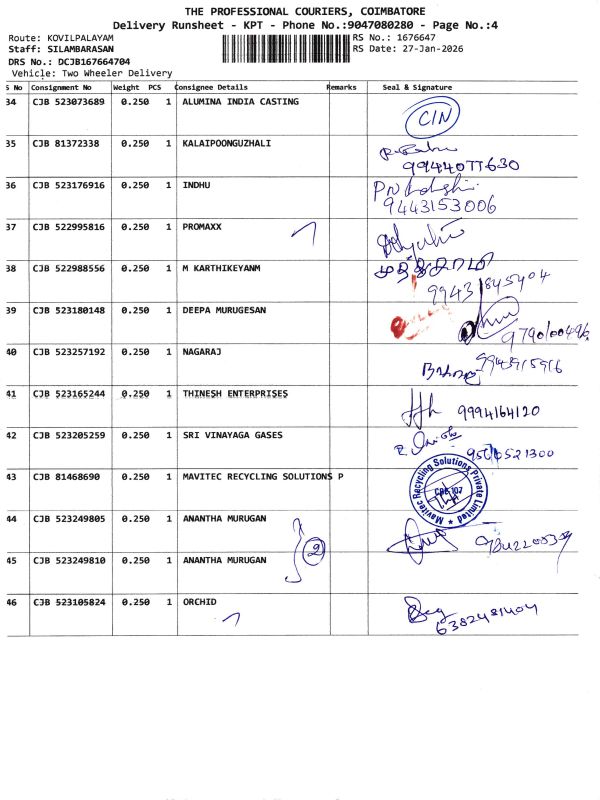 THE PROFESSIONAL COURIERS, COIMBATORE
Delivery Runsheet - KPT - Phone No.:9047080280 - Page No.:4
Route: KOVILPALAYAM RS No.: 1676647
Staff: SILAMBARASAN RS Date: 27-Jan-2026
DRS No.: DCJB167664704
Vehicle: Two Wheeler Delivery
S No Consignment No Weight PCS Consignee Details Remarks Seal & Signature
34 CJB 523073689 0.250 1 ALUMINA INDIA CASTING CIN
35 CJB 81372338 0.250 1 KALAIPOONGUZHALI
9944077630
36 CJB 523176916 0.250 1 INDHU
9443153006
37 CJB 522995816 0.250 1 PROMAXX
38 CJB 522988556 0.250 1 M KARTHIKEYANM
99431845404
39 CJB 523180148 0.250 1 DEEPA MURUGESAN
40 CJB 523257192 0.250 1 NAGARAJ
41 CJB 523165244 0.250 1 THINESH ENTERPRISES 9994164120
42 CJB 523205259 0.250 1 SRI VINAYAGA GASES
43 CJB 81468690 0.250 1 MAVITEC RECYCLING SOLUTIONS P
Mavitec Recycling Solutions Private Limited
44 CJB 523249805 0.250 1 ANANTHA MURUGAN
2
45 CJB 523249810 0.250 1 ANANTHA MURUGAN
46 CJB 523105824 0.250 1 ORCHID
6382481404